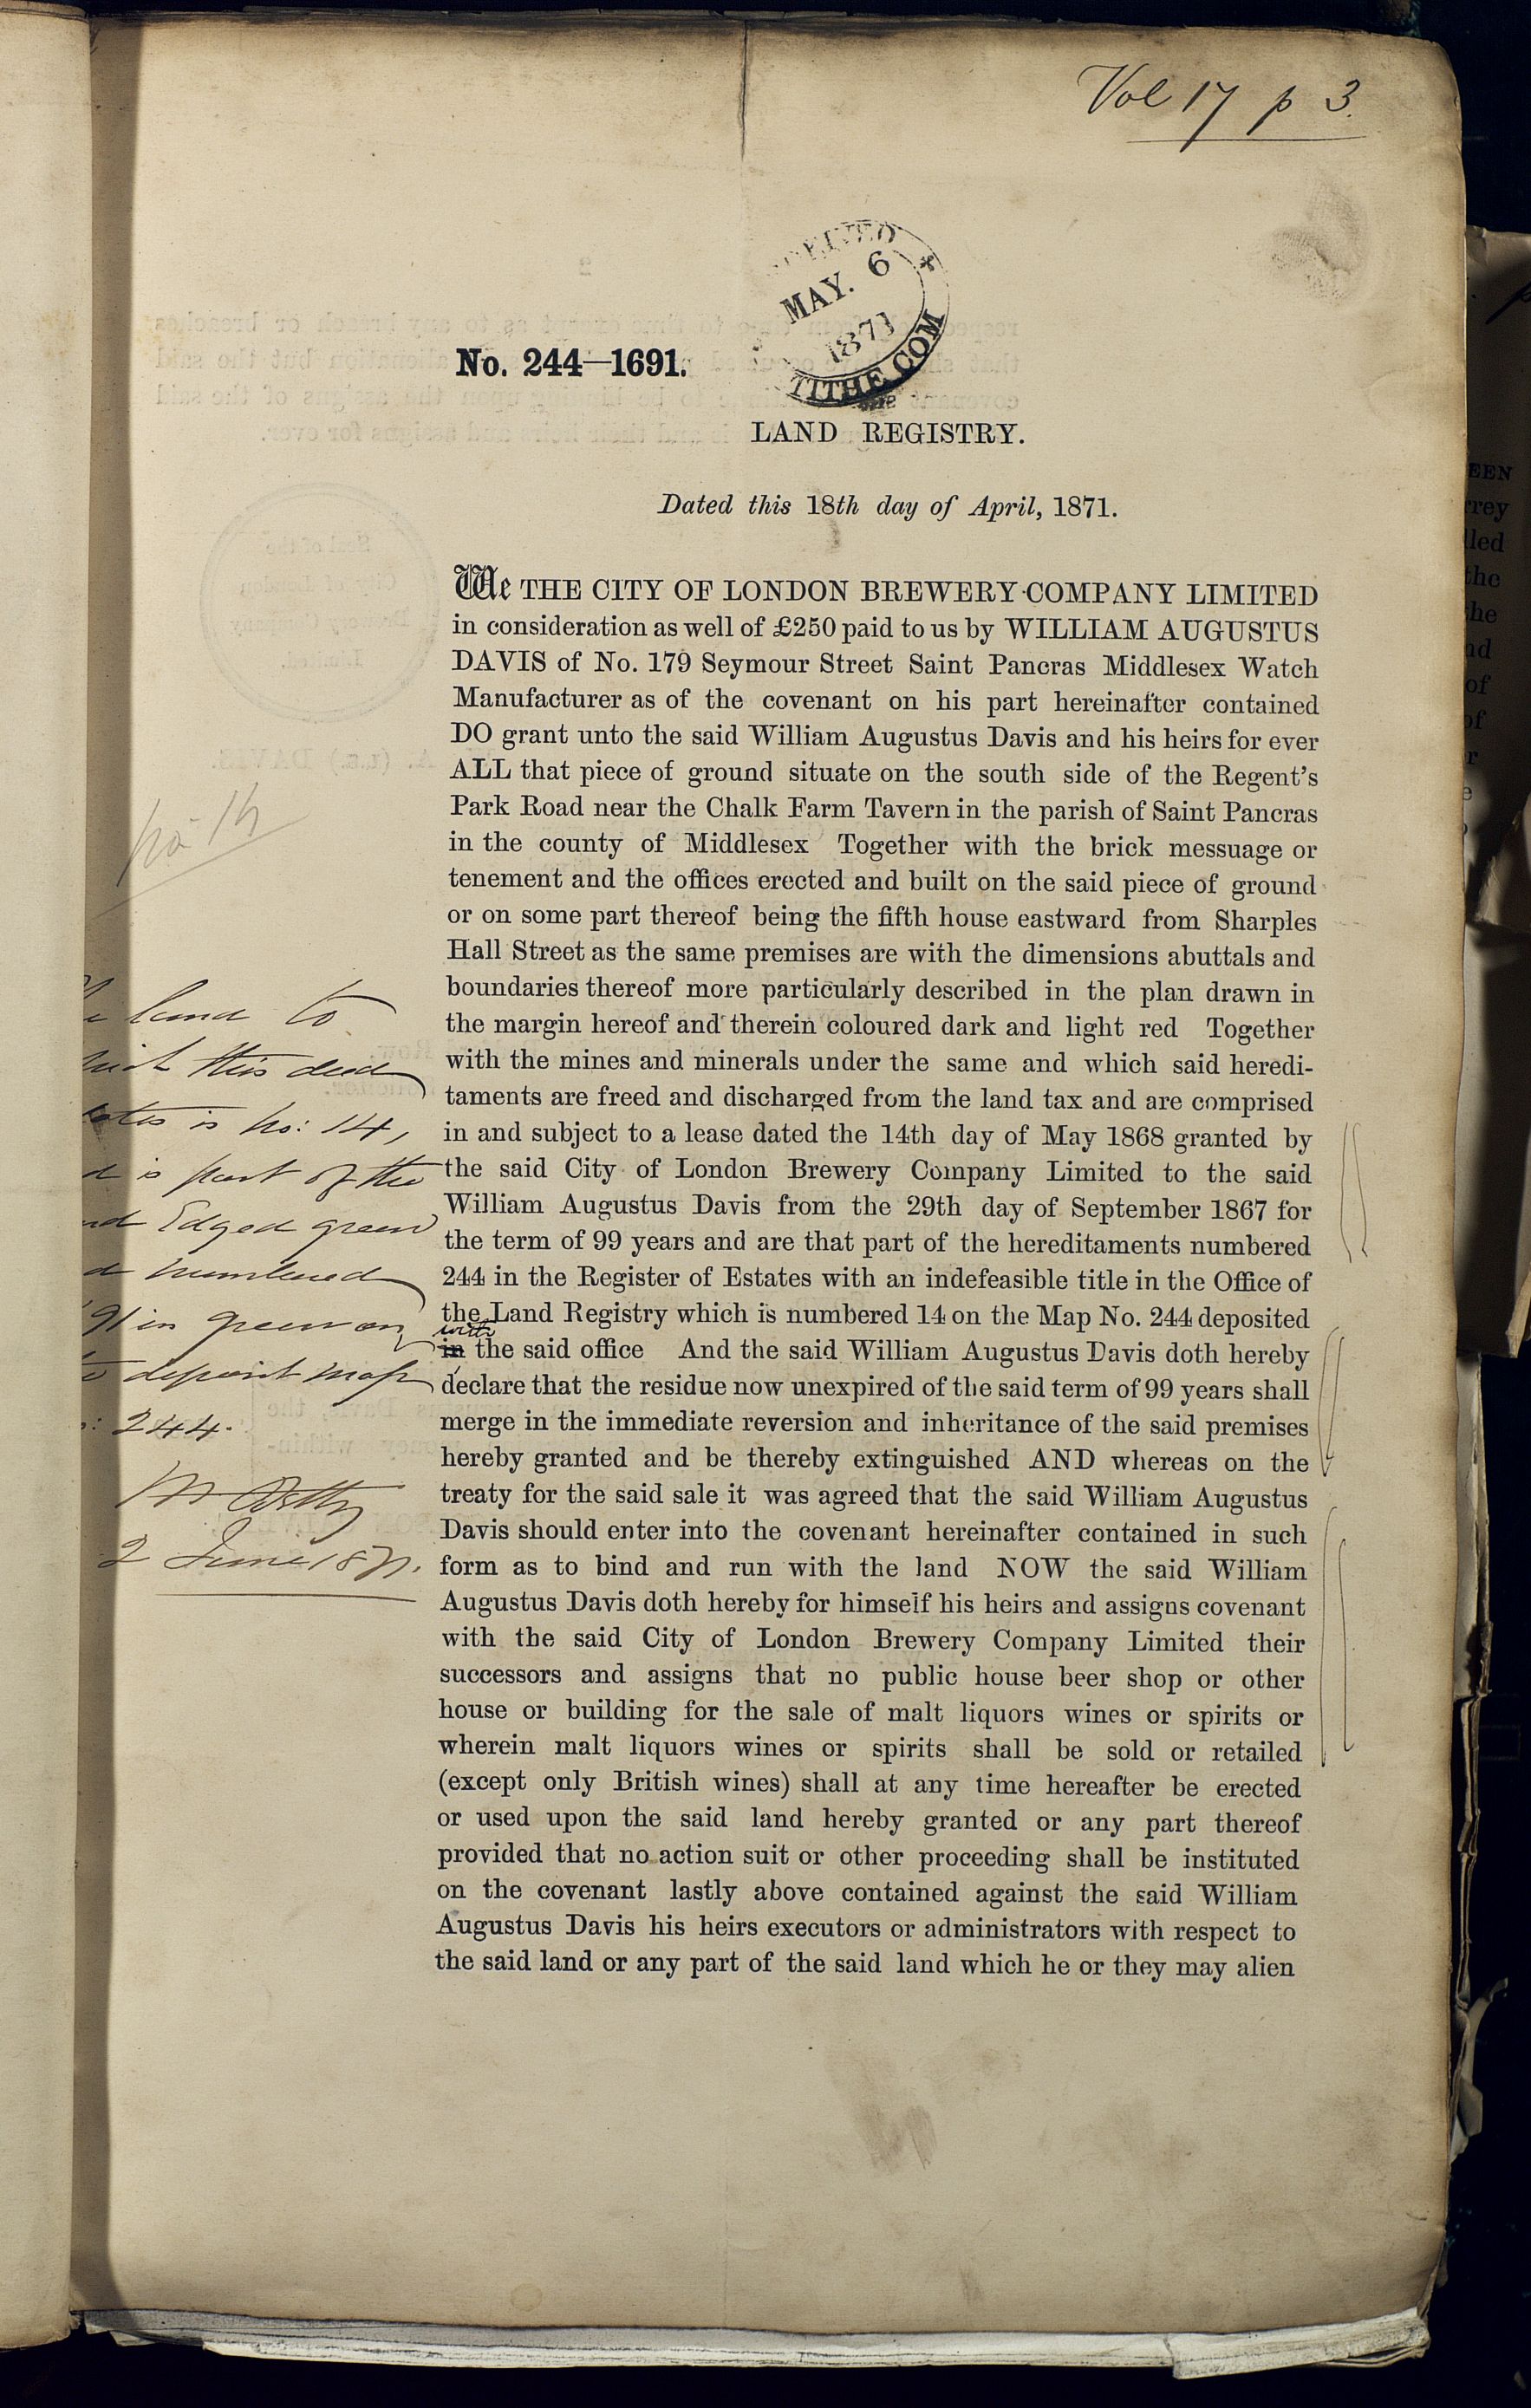 Vol 17 p 3.
MAY. 6
1871
TITHE COM
No. 244—1691.
LAND REGISTRY.
Dated this 18th day of April, 1871.
We THE CITY OF LONDON BREWERY COMPANY LIMITED
in consideration as well of £250 paid to us by WILLIAM AUGUSTUS
DAVIS of No. 179 Seymour Street Saint Pancras Middlesex Watch
Manufacturer as of the covenant on his part hereinafter contained
DO grant unto the said William Augustus Davis and his heirs for ever
ALL that piece of ground situate on the south side of the Regent's
Park Road near the Chalk Farm Tavern in the parish of Saint Pancras
in the county of Middlesex Together with the brick messuage or
tenement and the offices erected and built on the said piece of ground
or on some part thereof being the fifth house eastward from Sharples
Hall Street as the same premises are with the dimensions abuttals and
boundaries thereof more particularly described in the plan drawn in
the margin hereof and therein coloured dark and light red Together
with the mines and minerals under the same and which said heredi-
taments are freed and discharged from the land tax and are comprised
in and subject to a lease dated the 14th day of May 1868 granted by
the said City of London Brewery Company Limited to the said
William Augustus Davis from the 29th day of September 1867 for
the term of 99 years and are that part of the hereditaments numbered
244 in the Register of Estates with an indefeasible title in the Office of
the Land Registry which is numbered 14 on the Map No. 244 deposited
with
in the said office And the said William Augustus Davis doth hereby
declare that the residue now unexpired of the said term of 99 years shall
merge in the immediate reversion and inheritance of the said premises
hereby granted and be thereby extinguished AND whereas on the
treaty for the said sale it was agreed that the said William Augustus
Davis should enter into the covenant hereinafter contained in such
form as to bind and run with the land NOW the said William
Augustus Davis doth hereby for himself his heirs and assigns covenant
with the said City of London Brewery Company Limited their
successors and assigns that no public house beer shop or other
house or building for the sale of malt liquors wines or spirits or
wherein malt liquors wines or spirits shall be sold or retailed
(except only British wines) shall at any time hereafter be erected
or used upon the said land hereby granted or any part thereof
provided that no action suit or other proceeding shall be instituted
on the covenant lastly above contained against the said William
Augustus Davis his heirs executors or administrators with respect to
the said land or any part of the said land which he or they may alien
land to
this deed
is No: 14,
is part of the
Edged green
numbered
91 in green on
deposit map
244.
2 June 1871.